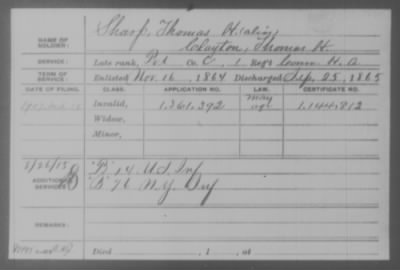 NAME OF SOLDIER: Sharp, Thomas H. (alias)
Clayton, Thomas H.
SERVICE: Late rank, Pvt Co. C, 1 Reg't Conn H. A.
TERM OF SERVICE: Enlisted Nov. 16, 1864 Discharged Sep. 25, 1865
DATE OF FILING. CLASS. APPLICATION NO. LAW. CERTIFICATE NO.
Invalid, 1.361.292 1.144.812
Widow,
Minor,
ADDITIONAL SERVICES: "B" 14 U.S. Inf
"B" 76 N.Y. Inf
REMARKS:
Died , 1 , at